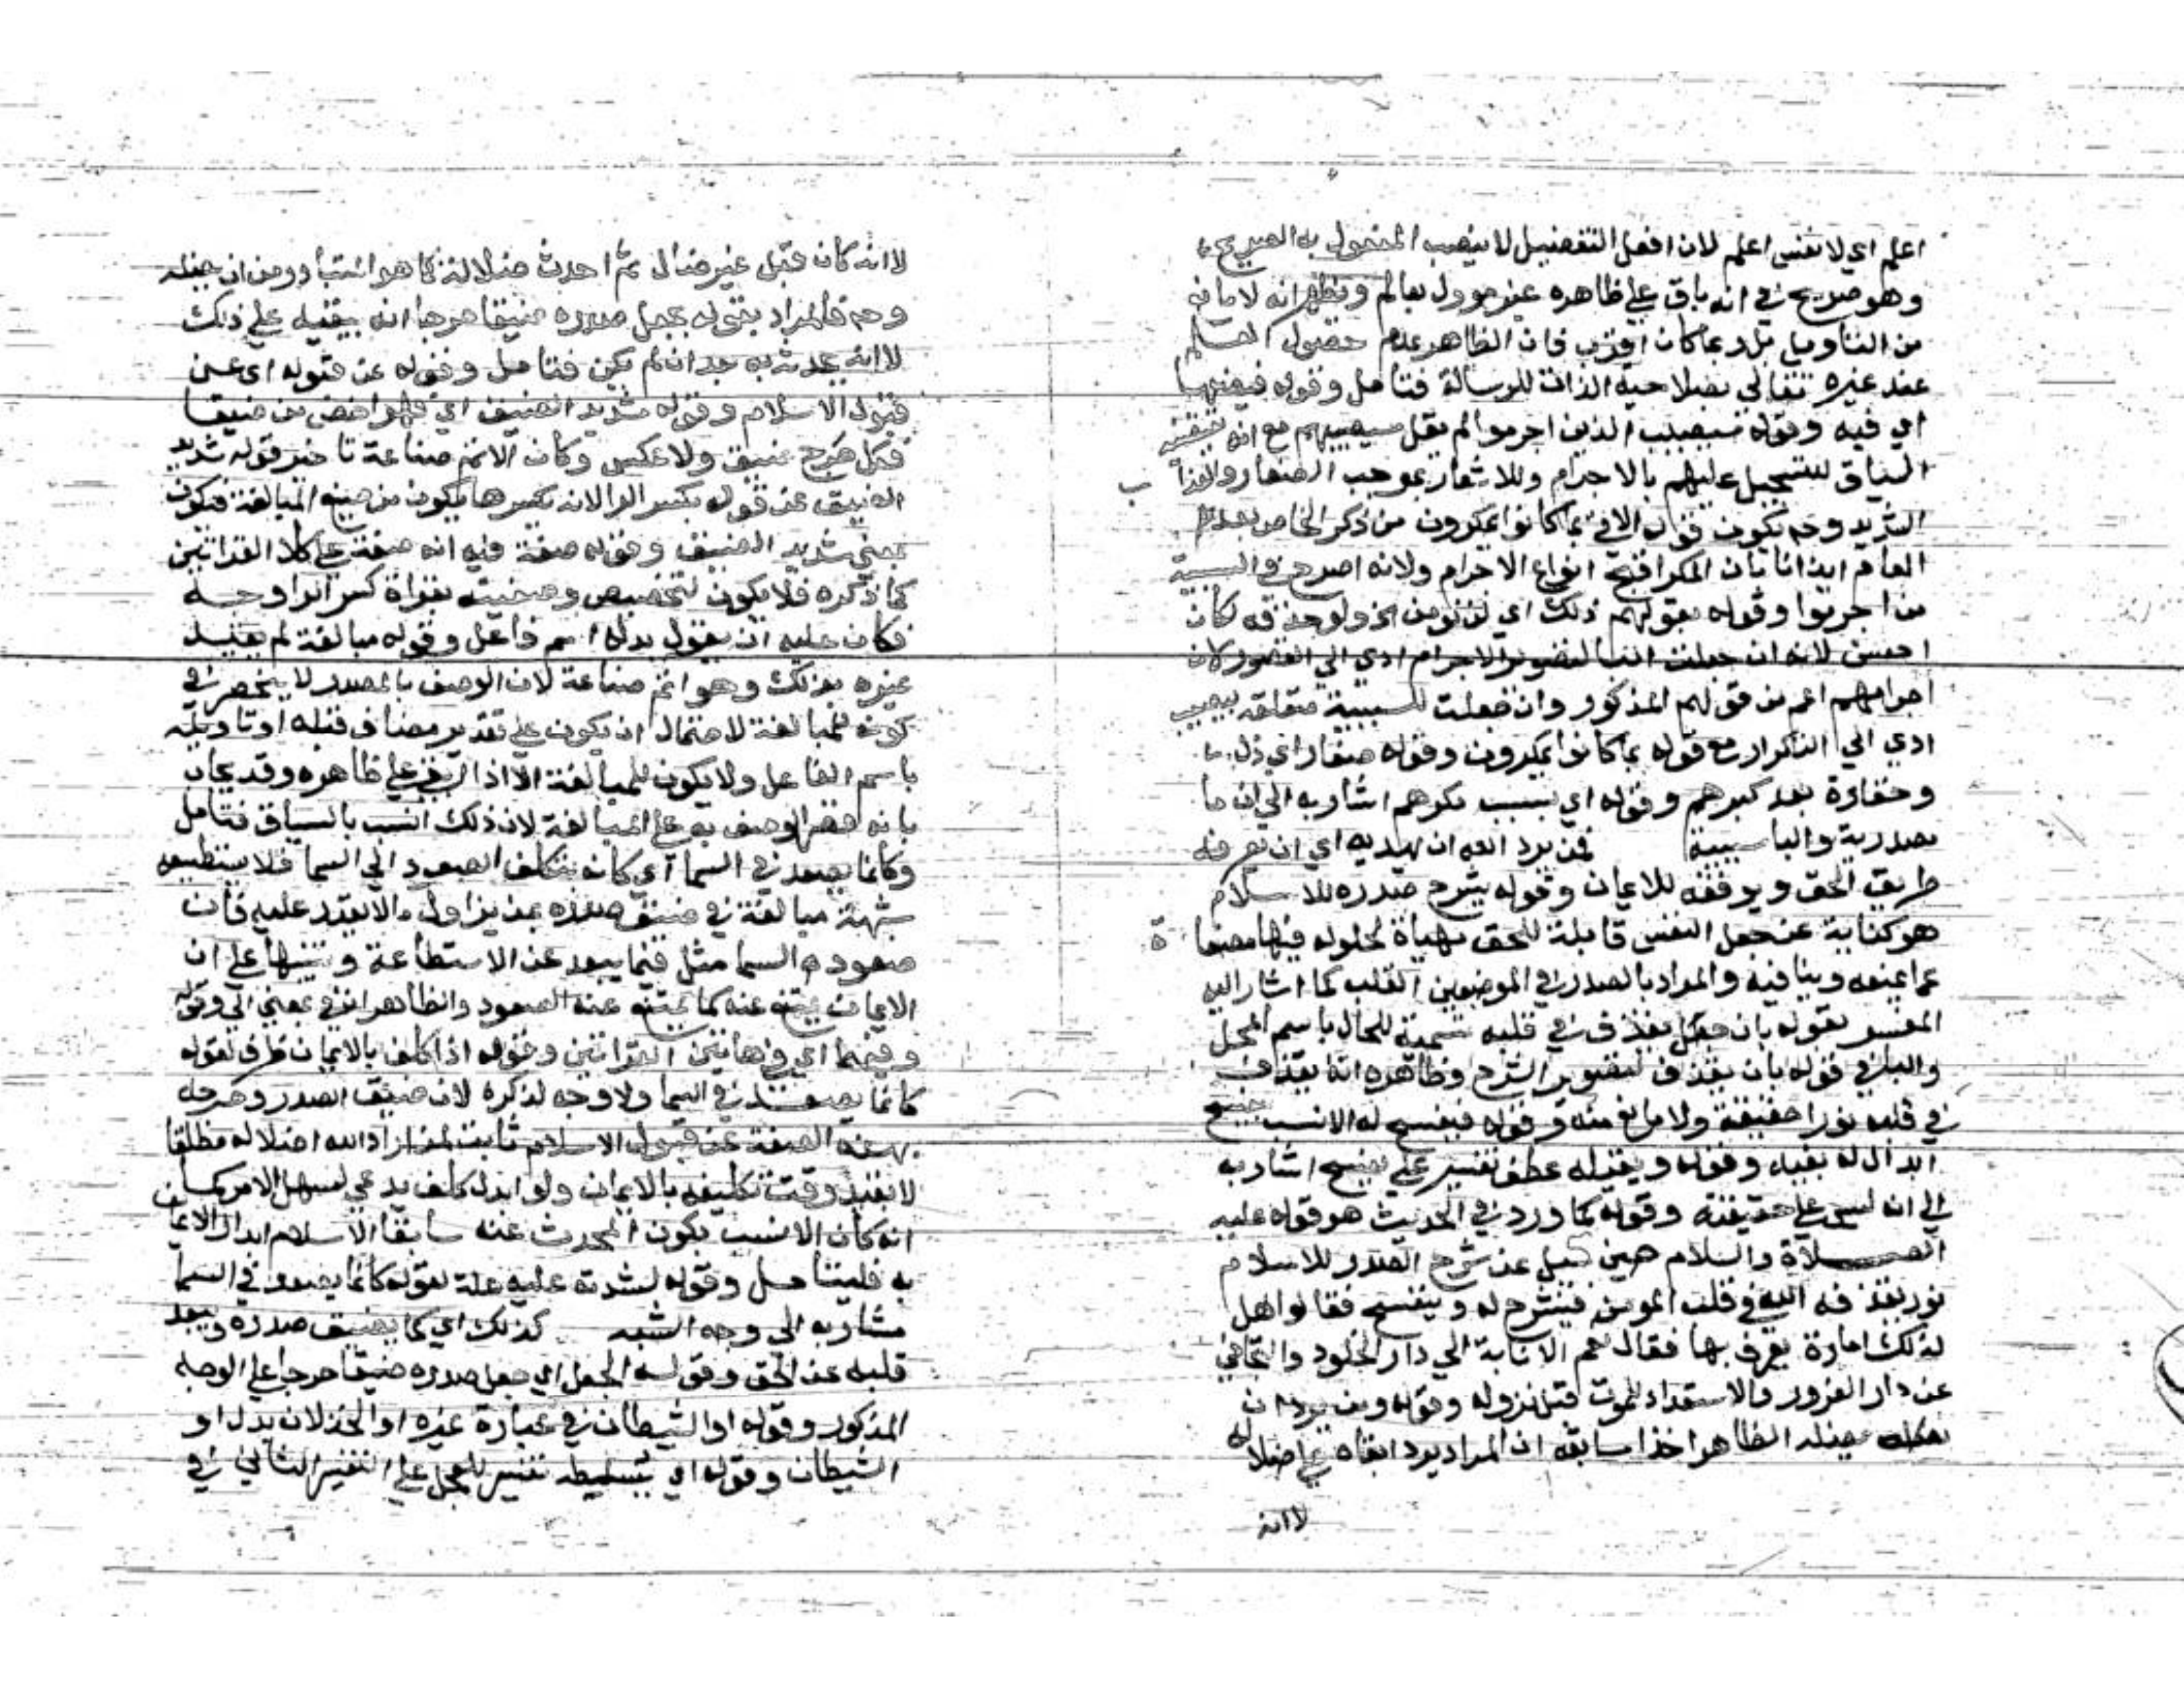 اعلم اي لا نفس اعلم لان افعل التفضيل لا ينصب المفعول به الصريح
وهو صريح في انه باق على ظاهره غير موول بعالم ونظر انه لا مانع
من التاويل بل ربما كان اقرب فان الظاهر عدم حصول العلم
عند غيره تعالي بصلاحية الذات للرسالة فتامل وقوله فيضعها
اي فيه وقوله سيصيب الذين اجرموا لم يقل سيصيبهم مع انه مقتضى
السياق للتسجيل عليهم بالاجرام وللاشعار بموجب الصغار والعذاب
الشديد وحـ تكون قوله الاتي بما كانوا يمكرون من ذكر الخاص بعد
العام ايذانا بان المكر اقبح انواع الاجرام ولانه اصرح في السببية
من اجرموا وقوله بقولهم ذلك اي لن نومن الخ ولو حذفه لكان
احسن لانه ان جعلت البا لتصوير الاجرام ادي الي القصور لان
اجرامهم اعم من قولهم المذكور وان جعلت للسببية متعلقة بيصيب
ادي الي التكرار مع قوله بما كانوا يمكرون وقوله صغار اي ذل
وحقارة بعد كبرهم وقوله اي بسبب مكرهم اشار به الي ان ما
مصدرية والبا سببية فمن يرد الله ان يهديه اي ان يعرفه
طريق الحق ويوفقه للايمان وقوله يشرح صدره للاسلام
هو كناية عن جعل النفس قابلة للحق مهياة لحلوله فيها مصفاة
عما يمنعه وينافيه والمراد بالصدر في الموضعين القلب كما اشار اليه
المفسر بقوله بان يقذف في قلبه تسمية للحال باسم المحل
والبا في قوله بان يقذف لتصوير الشرح وظاهره انه يقذف
في قلبه نورا حقيقة ولا مانع منه وقوله فينفسح له الانسب
ابدال له بقبله وقوله ويقبله عطف تفسير علي ينفسح اشار به
الي انه ليس علي حقيقته وقوله كما ورد في الحديث هو قوله عليه
الصلاة والسلام حين سئل عن شرح الصدر للاسلام
نور يقذفه الله في قلب المومن فينشرح له وينفسح فقالوا هل
لذلك امارة يعرف بها فقال نعم الانابة الي دار الخلود والتجافي
عن دار الغرور والاستعداد للموت قبل نزوله وقوله ومن يرد ان
يضله الظاهر اخذا مما سبق ان المراد يرد ابقاه علي اضلاله
لا انه
لا انه كان قبل غير ضال ثم احدث ضلالة كما هو المتبادر من ان يضله
وحـ فالمراد بقوله يجعل صدره ضيقا حرجا انه يبقيه علي ذلك
لا انه يحدثه به بعد ان لم يكن فتامل وقوله عن قبوله اي عن
قبول الاسلام وقوله شديد الضيق اي فهو اخص من ضيقا
فكل حرج ضيق ولا عكس وكان الاتم صناعة تاخير قوله شديد
الضيق عن قوله بكسر الرا لانه بكسرها يكون من صيغ المبالغة فيكون
بمعني شديد الضيق وقوله صفة فيه انه صفة على كلا القراتين
كما ذكره فلا يكون لتخصيص وصفيته بقراة كسر الرا وجه
فكان عليه ان يقول بدله اسم فاعل وقوله مبالغة لم يقيد
غيره بذلك وهو اتم صناعة لان الوصف بالمصدر لا ينحصر في
كونه للمبالغة لاحتمال ان يكون علي تقدير مضاف قبله او تاويله
باسم الفاعل ولا يكون للمبالغة الا اذا ابقي علي ظاهره وقد يجاب
بانه قصر الوصف به علي المبالغة لان ذلك انسب بالسياق فتامل
وكانما يصعد في السما اي كانه يتكلف الصعود الي السما فلا يستطيعه
شبهه مبالغة في ضيق صدره بمن يزاول ما لا يقدر عليه فان
صعود السما مثل فيما يبعد عن الاستطاعة وتنبيها علي ان
الايمان يمتنع عنه كما يمتنع عنه الصعود والظاهر ان في بمعني الي وقوله
وفيهما اي في هاتين القراتين وقوله اذا كلف بالايمان ظرف لقوله
كانما يصعد في السما ولا وجه لذكره لان ضيق الصدر وحرجه
بهذه الصفة عن قبول الاسلام ثابت لمن اراد الله اضلاله مطلقا
لا بقيد وقت تكليفه بالايمان ولو ابدل كلف بدعي لسهل الامر كما
انه كان الانسب بكون المحدث عنه سابقا الاسلام ابدال الايمان
به فليتامل وقوله لشدته عليه علة لقوله كانما يصعد في السما
مشار به الي وجه الشبه كذلك اي كما يضيق صدره ويبعد
قلبه عن الحق وقوله الجعل اي جعل صدره ضيقا حرجا علي الوجه
المذكور وقوله او الشيطان في عبارة غيره او الخذلان بدل او
الشيطان وقوله اي يسلطه تفسير ليجعل علي التفسير الثاني في